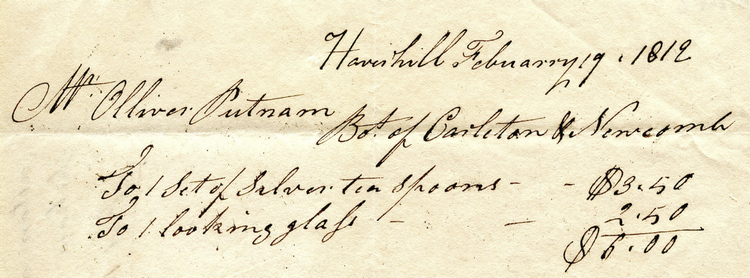 Haverhill Febuarry 19. 1812
Mr. Olliver Putnam
Bot. of Carleton & Newcomb
To 1 Set of Silver tea Spoons - - $3.50
To 1 looking glass - - 2.50
$6.00